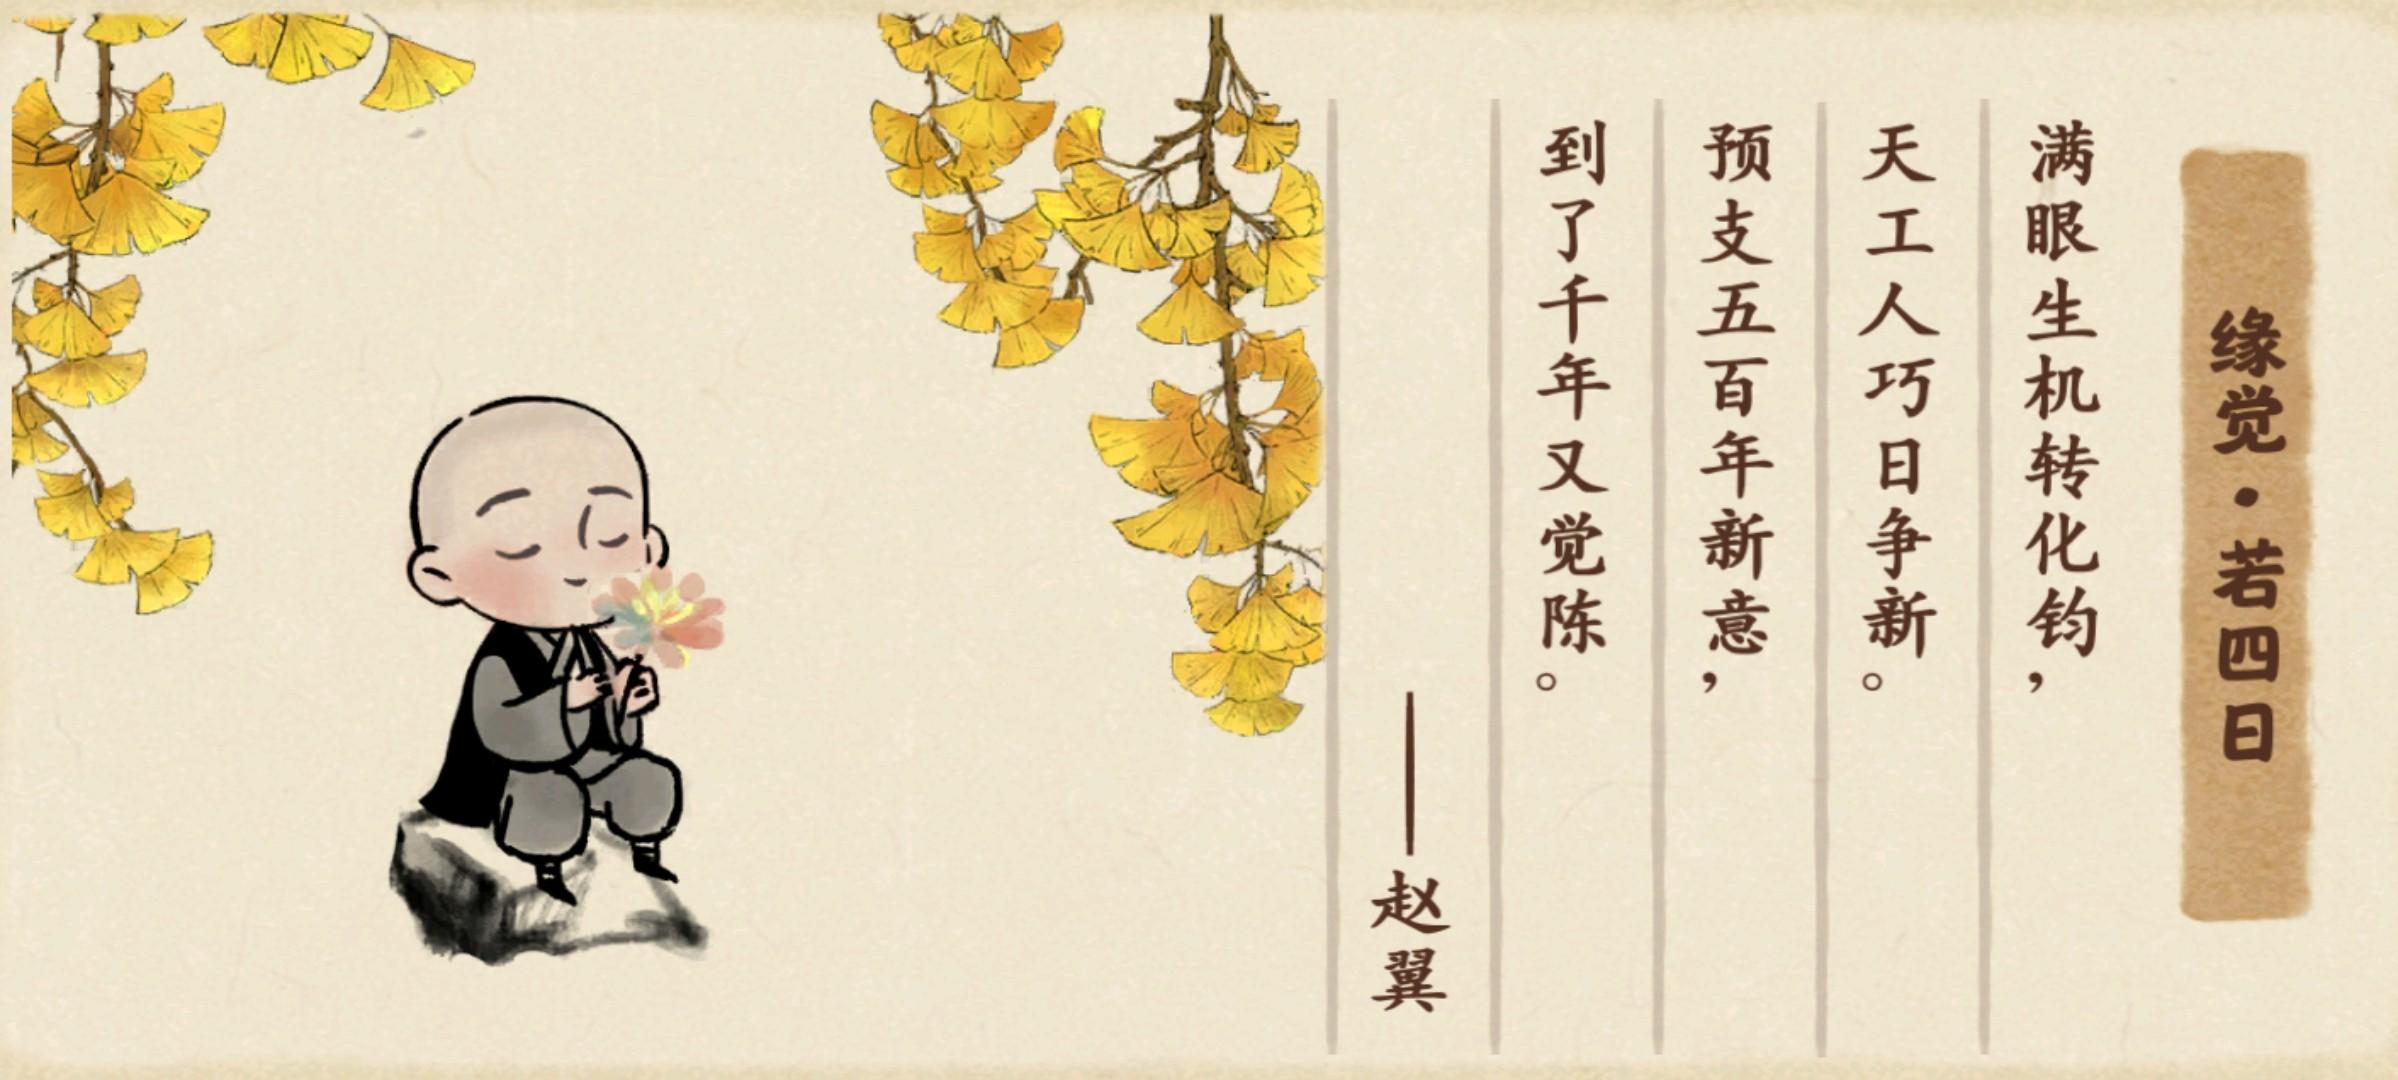 缘觉·若四日
满眼生机转化钧，
天工人巧日争新。
预支五百年新意，
到了千年又觉陈。
——赵翼